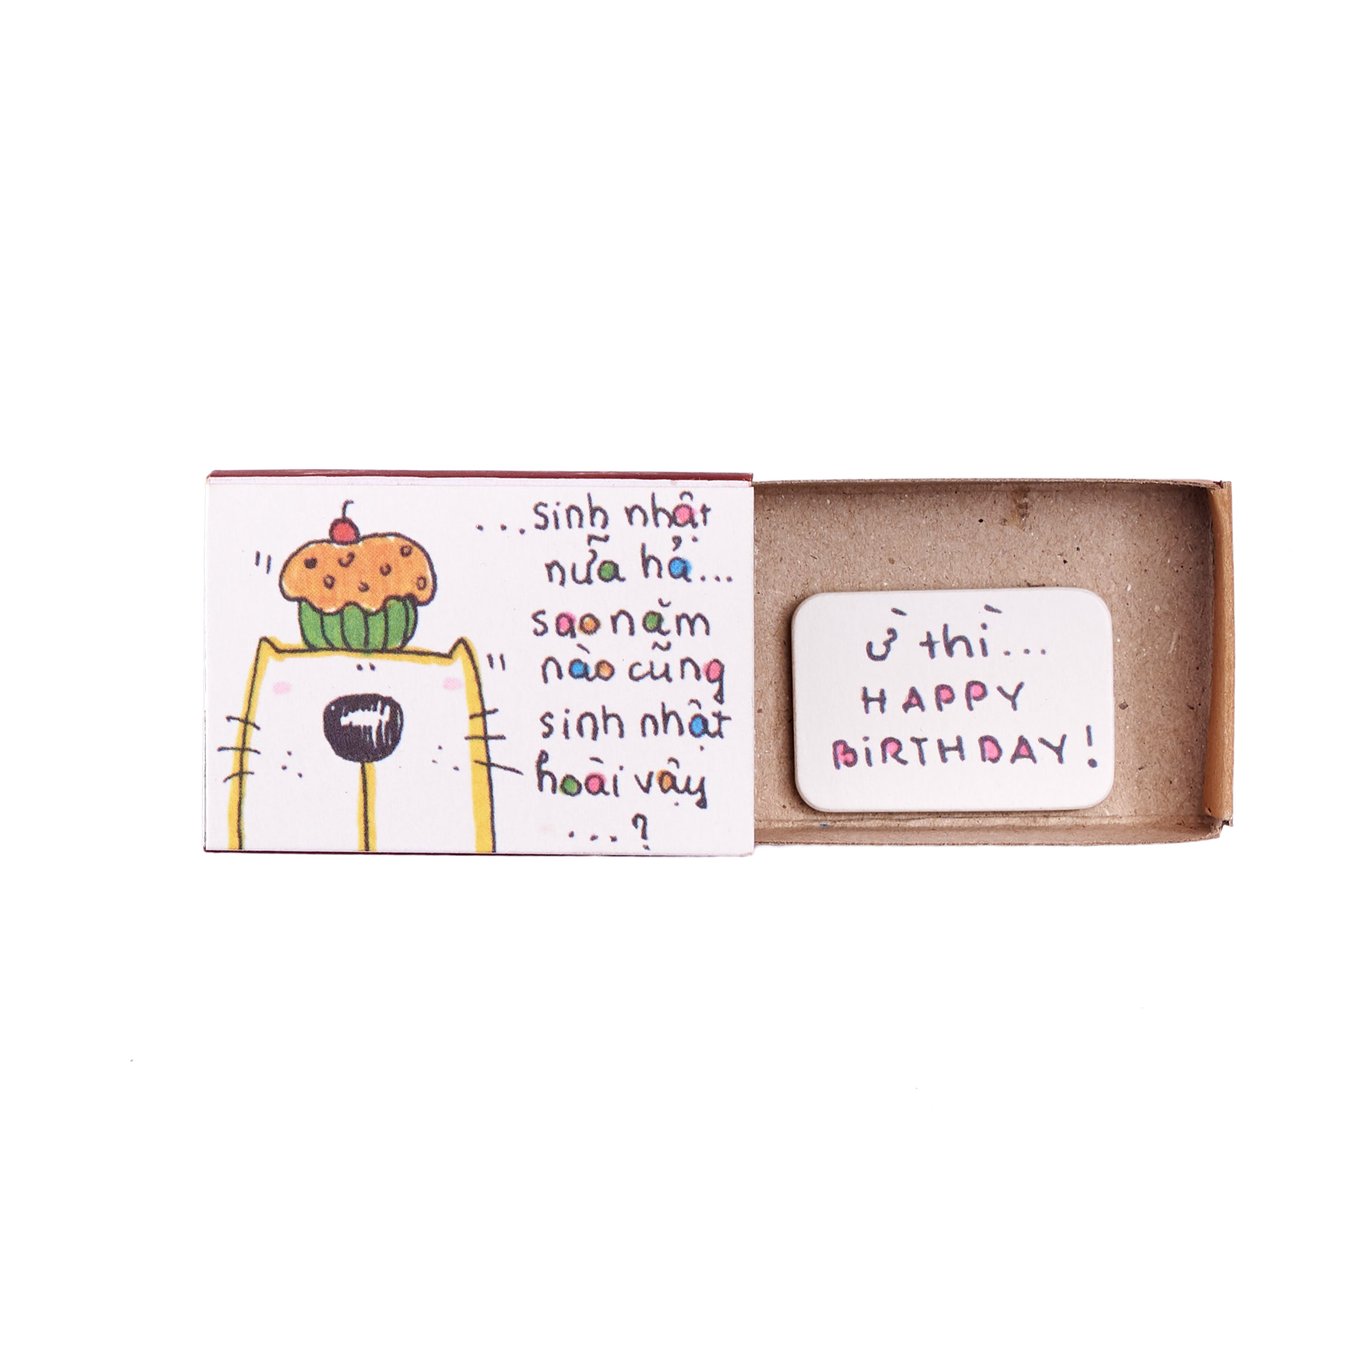 ...sinh nhật
nữa hả...
sao năm
nào cũng
sinh nhật
hoài vậy
...?
ừ thì...
HAPPY
BiRTHDAY!